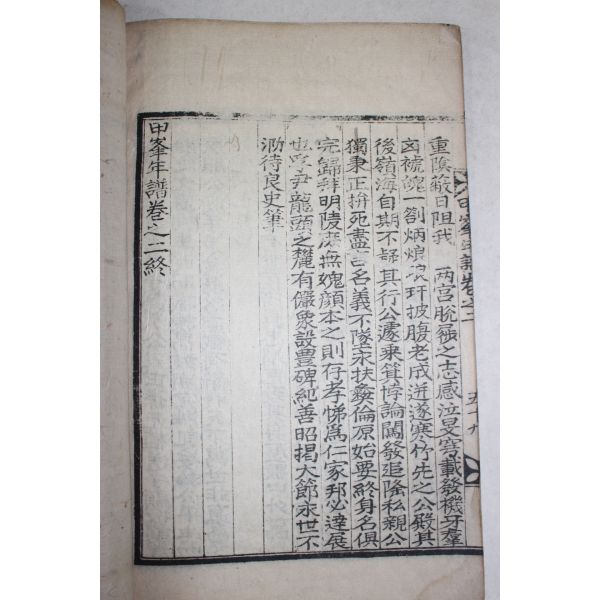 重陰蔽日阻我 两宮脫屣之志感泣旻穹載發機牙羣
凶褫魄一劄炳烺琅玕披腹老成迸逐寒竹先之公殿其
後嶺海自期不疑其行公遽乘箕悖論闖發追隆私親公
獨秉正拚死盡言名義不墜永扶彜倫原始要終身名俱
完歸拜明陵庶無媿顔本之則存孝悌爲仁家邦必達展
也 尹龍頭之麓有儼象設豊碑紀善昭揭大節永世不
泐待良史筆
甲峯年譜卷之二終
甲峯年譜卷之二 五十九